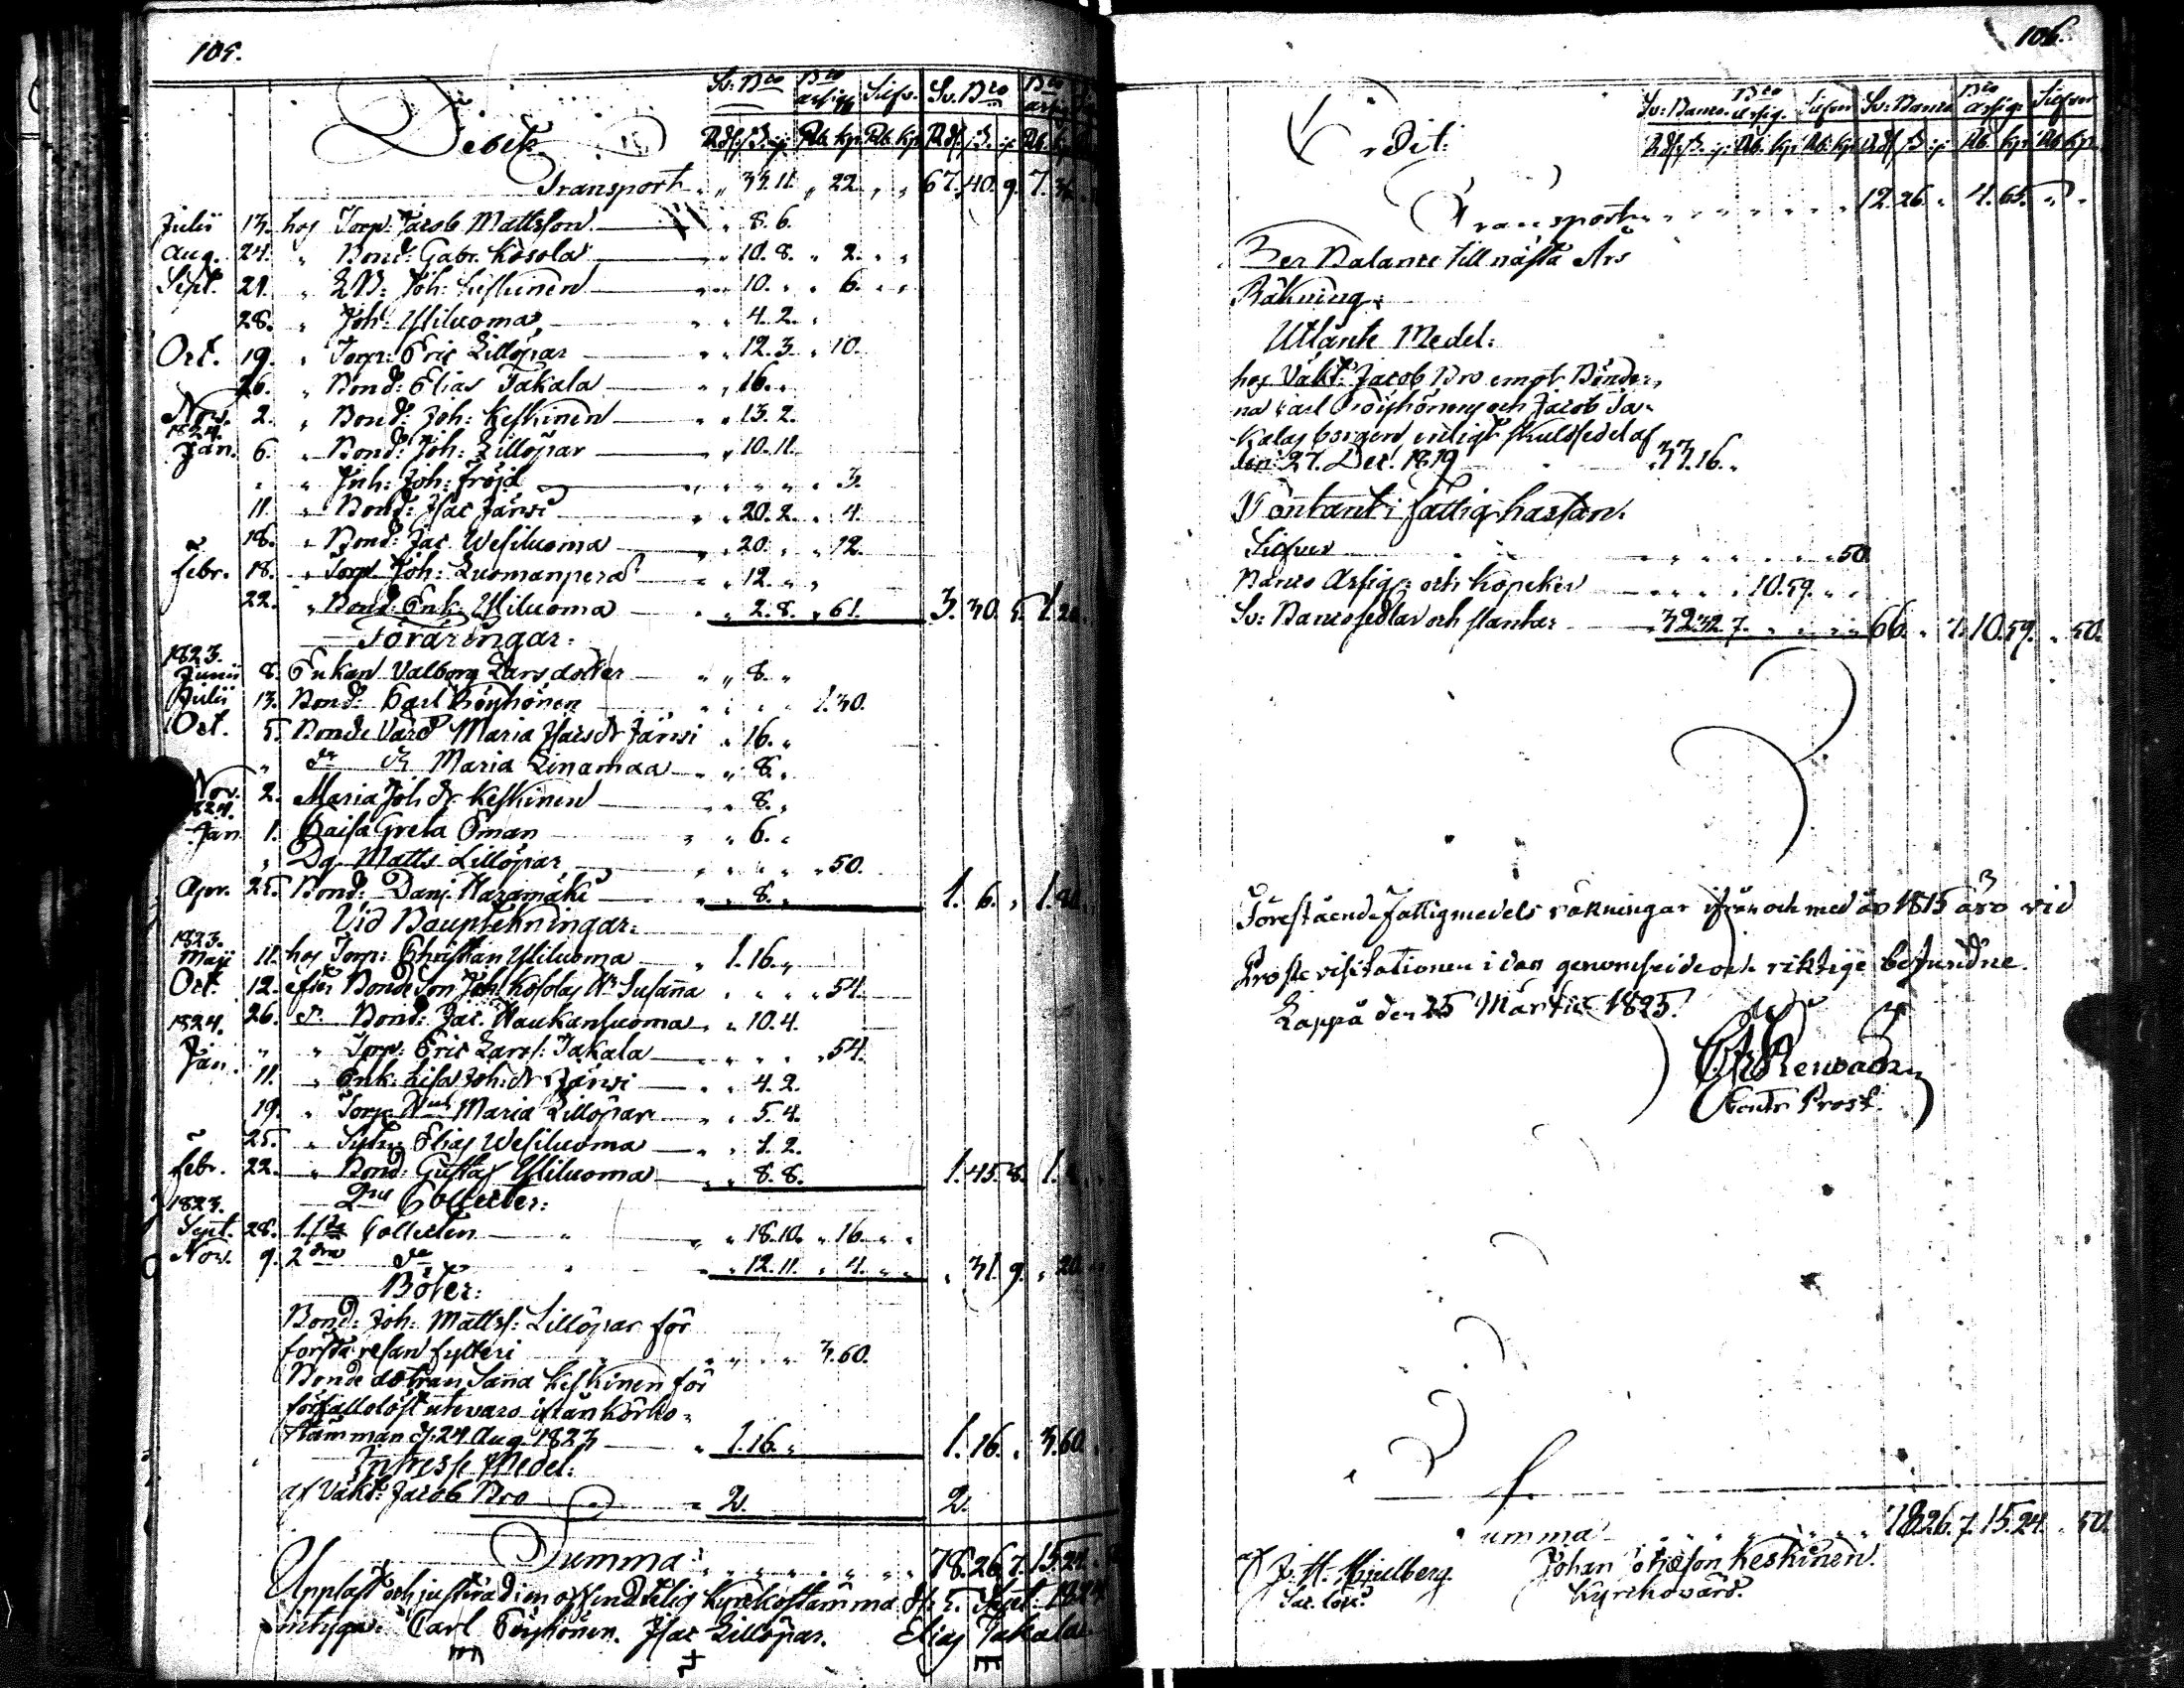 105.
Debet.
Sv: Bco Bco assigg Silfv. Sv. Bco Bco
Rdr ß rp Rb. kp. Rb. kp. Rdr ß. rp Rb. kp
Transport „ 33. 11. „ 22. „ „ 67. 40. 9. 7.
Julii 13. hos Torp: Jacob Mattsson „ 8. 6.
Aug. 24. „ Bond: Gabr. Kosola „ 10. 8. „ 2. „ „
Sept. 21. „ Joh: „ 10. „ „ 6. „ „
28. „ Joh: Yliluoma „ 4. 2. „
Oct. 19. „ Torp: Eric Lillöpar „ 12. 3. „ 10.
26. „ Bond: Elias Takala „ 16. „
Nov. 2. „ Bond: Joh: Keskinen „ 13. 2.
1824.
Jan. 6. „ Bond: Joh: Lillöpar „ 10. 11.
„ „ Inh: Joh: Fröjd „ „ „ „ 3.
11. „ Bond: Isac Järwi „ 20. 2. „ 4.
18. „ Bond: Jac. Wesiluoma „ 20. „ „ 12.
Febr. 18. „ Torp. Joh: Luomanperä „ 12. „ „
22. „ Bond: Enk: Yliluoma „ 2. 8. „ 61. 3. 30. 5. 1.
Föräringar:
1823.
Junii 8. Enkan Valborg Larsdotter „ 8. „
Julii 13. Bond: Carl Köyhönen „ „ „ 1. 30.
Oct. 5. Bonde Värd: Maria Isacs dr Järwi „ 16. „
„ do dr Maria Linamaa „ 8. „
Nov. 2. Maria Joh dr Keskinen „ 8. „
1824.
Jan 1. Caisa Greta Öman „ 6. „
„ Dg. Matts Lillöpar „ „ „ „ 50.
Apr. 25. Bond: Danj. Haramäki „ 8. „ 1. 6. „ 1.
Vid
1823.
Maji 11. hos Torp: Christian Yliluoma „ 1. 16. „
Oct. 12. efter Bonde Son Joh: Kosolas Hu Susanna „ „ „ „ 54.
26. do Bond: Jac. Haukanluoma „ 10. 4.
1824.
„ „ Torp: Eric Larss: Takala „ „ „ „ 54.
Jan. 11. „ Enk: Lisa Joh: dr Järwi „ 4. 2.
19. „ Torp: Maria Lillöpar „ 5. 4.
25. „ Elias Wesiluoma „ 1. 2.
Febr. 22. „ Bond: Gustaf Yliluoma „ 8. 8. 1. 45. 8. 1.
2ne Collecter:
1823.
Sept. 28. 1.sta Collecten „ „ 18. 10. „ 16. „ „
Nov. 9. 2dra do „ „ 12. 11. „ 4. „ „ „ 31. 9. „ 20.
Böter:
Bond: Joh: Matts: Lillöpar för
första resan fylleri „ „ „ 3. 60.
Bonde dottran Sanna Keskinen för
förfallolöst utevaro ifrån kyrko-
stämman d: 24. Aug. 1823 „ 1. 16. „ 1. 16. „ 3. 60.
Intresse Medel:
af Väkt: Jacob Bro „ 2. 2.
Summa: „ „ „ „ „ „ „ 78. 26. 7. 15. 24.
Uppläst och justerad i en offendtelig kyrkostämma d: 5. Sept. 1824
intyga: Carl Köyhönen. Isac Lillöpar. Elias Takala.
106.
Credit:
Sv: Banco. Bco Assig. Silfver Sv: Banco Bco Assig. Silfver
Rdr ß. rp Rb. kp Rb. kp Rdr ß rp Rb. kp Rb kp.
Transport „ „ „ „ „ „ „ 12. 26. „ 4. 65. „ „
Per Balance till nästa Års
Räkning:
Utlånte Medel:
hos Väkt: Jacob Bro emot Bönder-
na Carl Köyhönens och Jacob Ta-
kalas borgen enligt skuldsedel af
den 27. Dec. 1819 „ 33. 16. „
Contant i Fattig kassan.
Silfver „ „ „ „ „ „ 50
Banco Assig: och kopeker „ „ „ 10. 59. „ „
Sv: Banco sedlar och slantar „ 32 32 7. „ „ „ „ 66. „ 7. 10. 59. „ 50.
Förestående Fattigmedels räkningar ifrån och med år 1815 äro vid
Proste visitationen i dag genomseide och riktige befundne.
Lappå den 25 Martii 1825.
Contr. Prost.
Summa „ „ „ „ „ 78. 26. 7. 15. 24. „ 50.
Johan Keskinen.
Kyrckovärd.